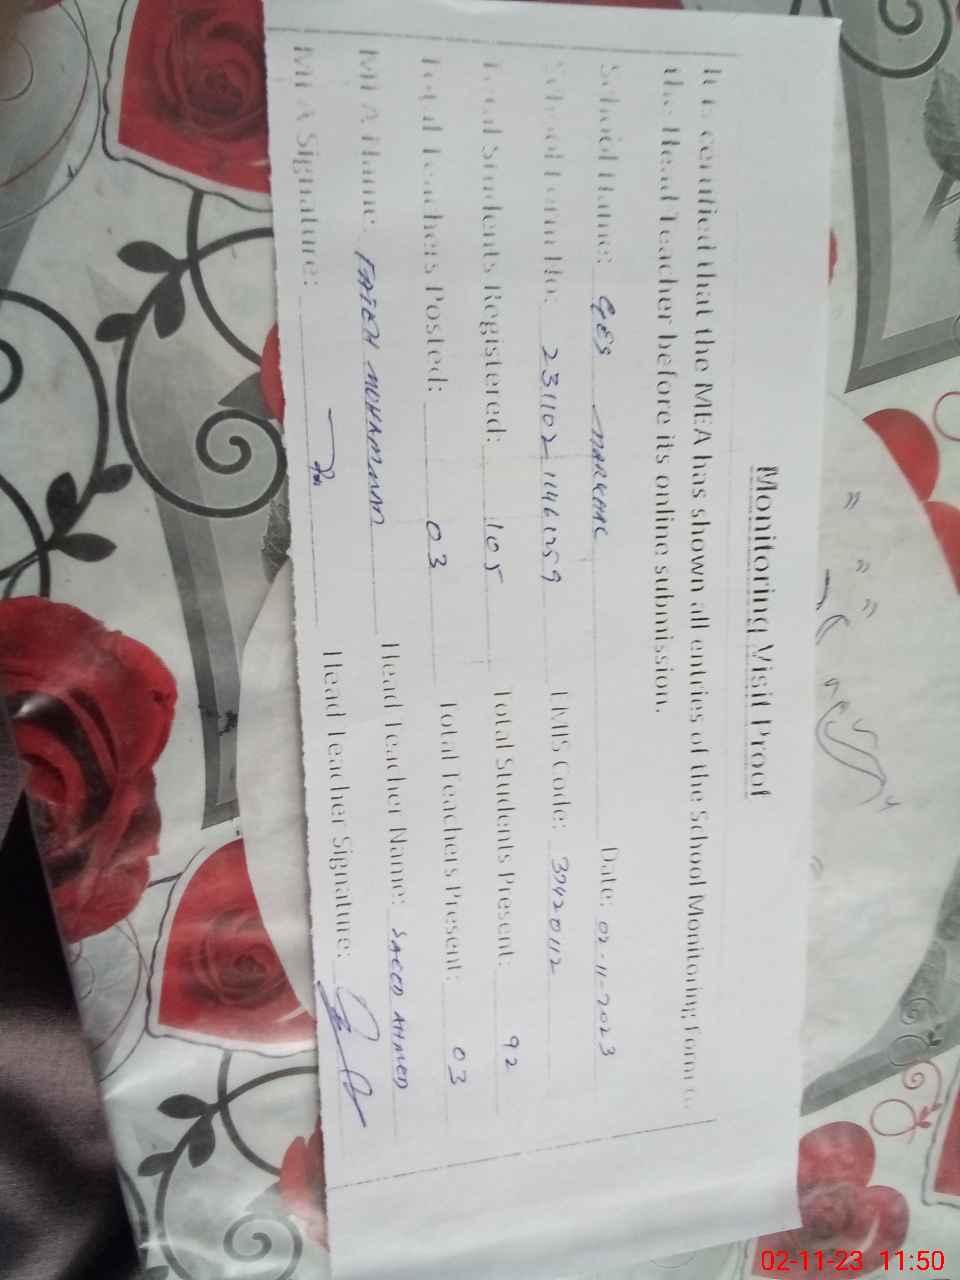 Monitoring Visit Proof
It is certified that the MEA has shown all entries of the School Monitoring Form to
the Head Teacher before its online submission.
School Name: GES MARKHAC Date: 02-11-2023
School Form No: 231102 1146 1259 EMIS Code: 39420112
Total Students Registered: 105 Total Students Present: 92
Total Teachers Posted: 03 Total Teachers Present: 03
MEA Name: FATEH MOHAMMAD Head Teacher Name: SAEED AHMED
MEA Signature: Head Teacher Signature:
02-11-23 11:50